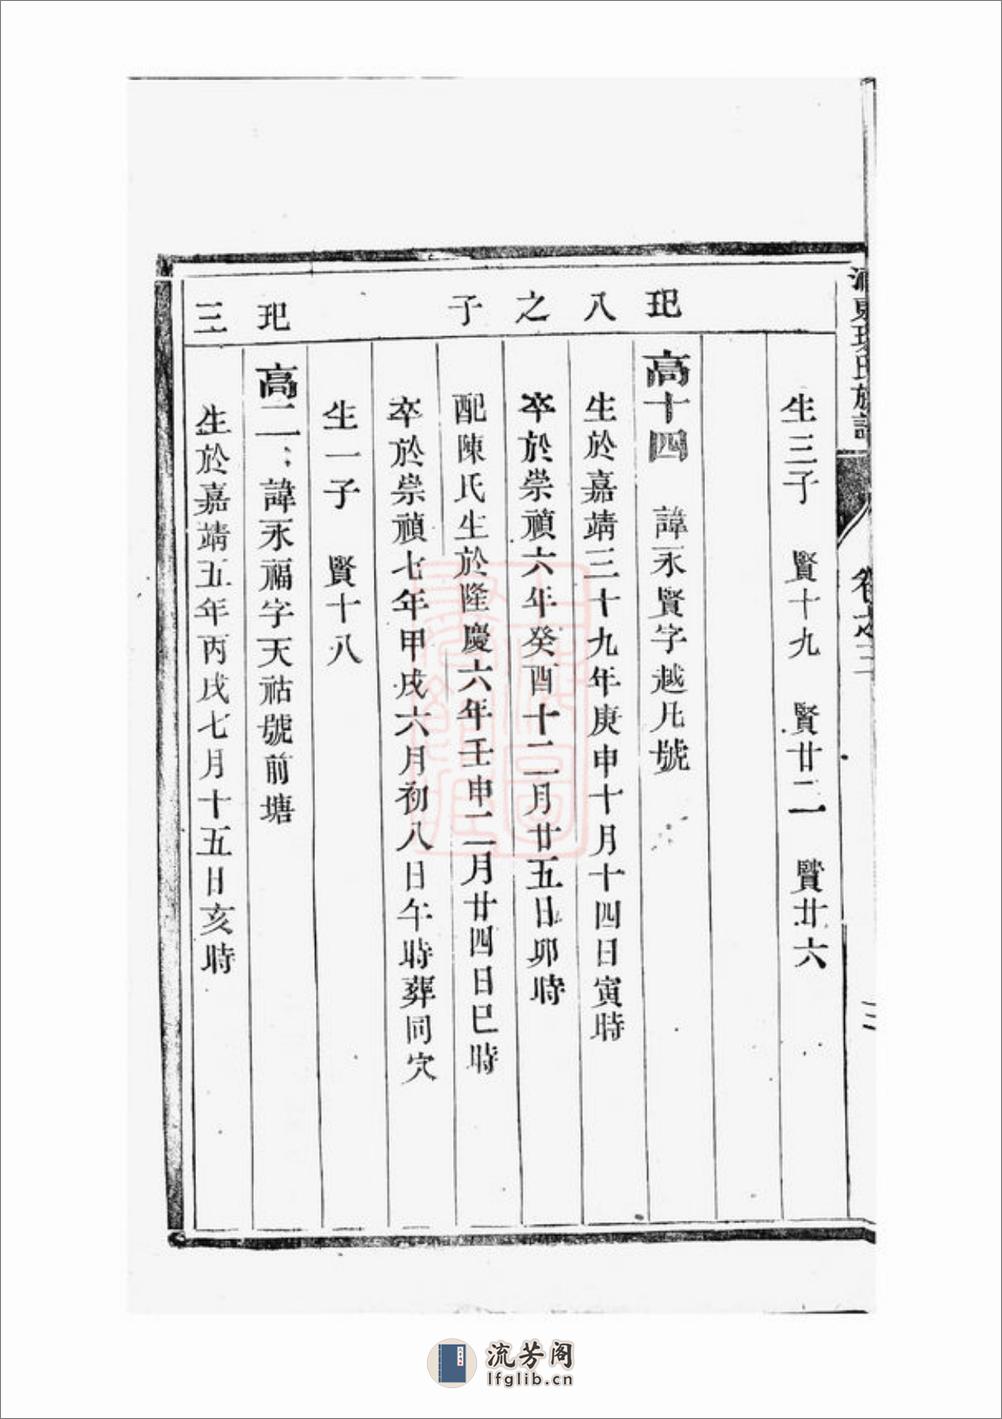 東 氏族譜
卷之三
三
生三子 賢十九 賢廿二 賢廿六
玘八之子
高十四 諱永賢字越凡號
生於嘉靖三十九年庚申十月十四日寅時
卒於崇禎六年癸酉十二月廿五日卯時
配陳氏生於隆慶六年壬申二月廿四日巳時
卒於崇禎七年甲戌六月初八日午時葬同穴
生一子 賢十八
玘三
高二 諱永福字天祜號前塘
生於嘉靖五年丙戌七月十五日亥時
流芳阁
lfglib.cn